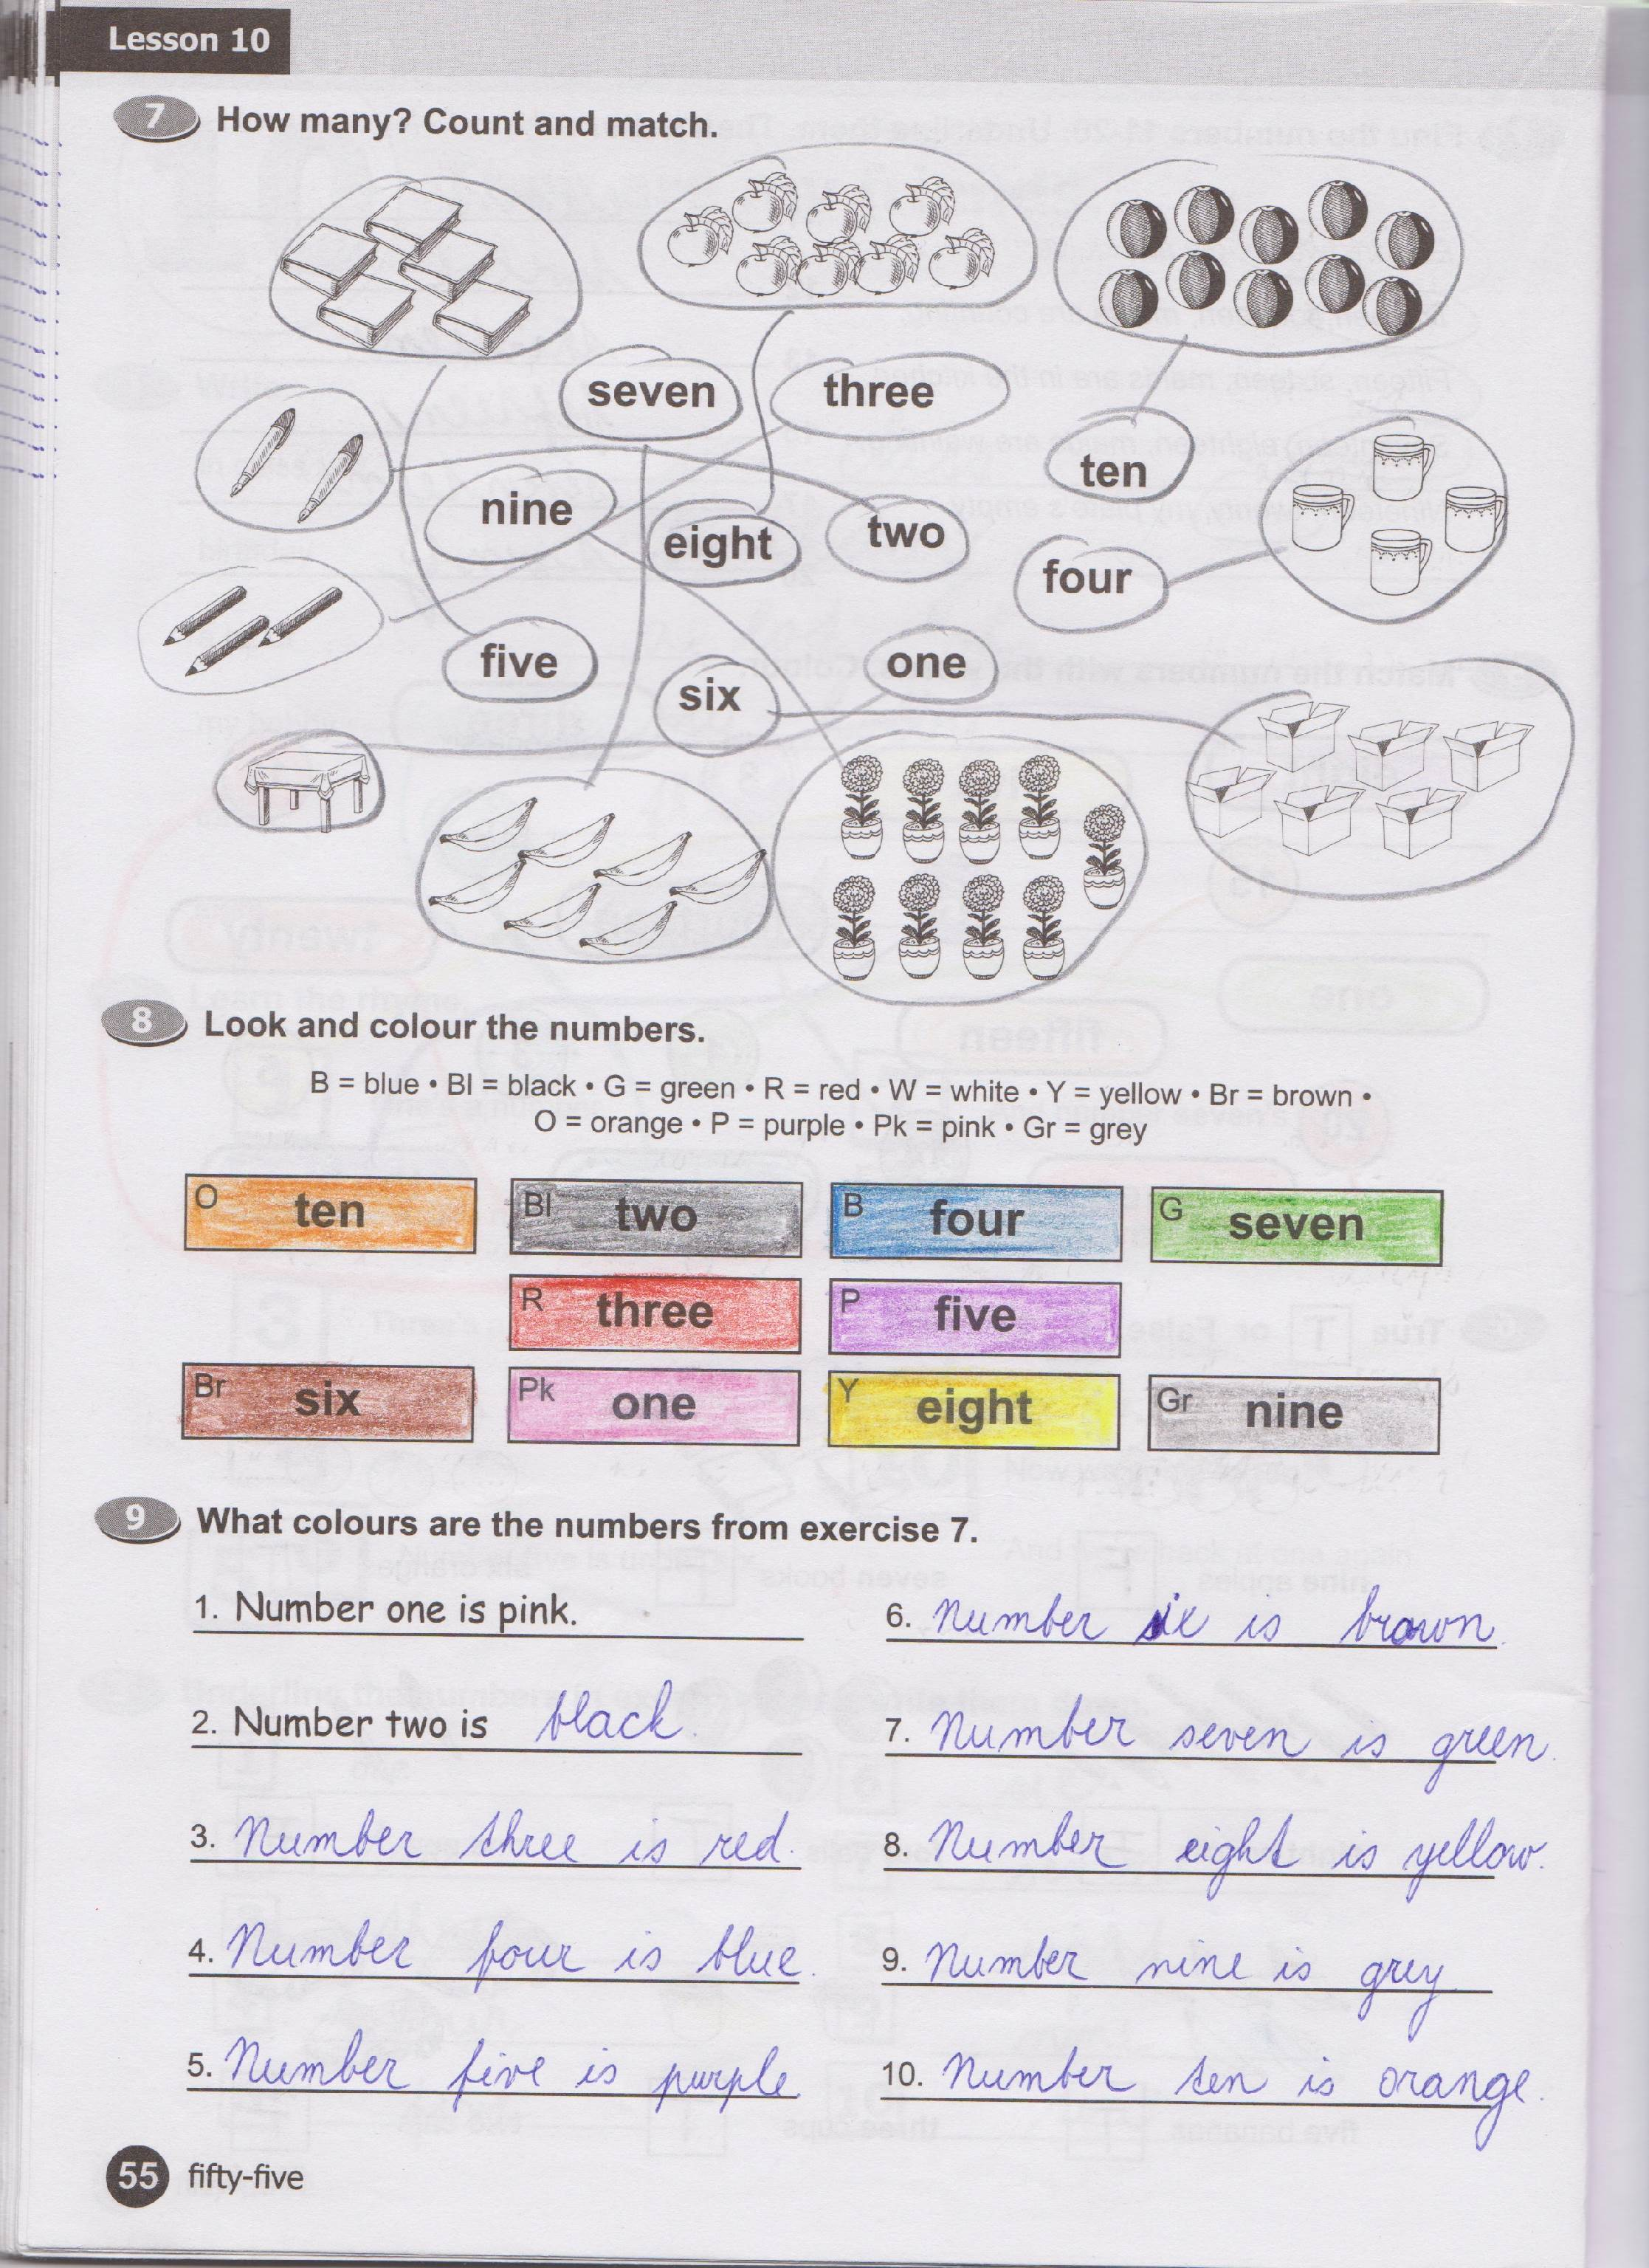 Lesson 10
7 How many? Count and match.
seven
three
ten
nine
eight
two
four
five
six
one
8 Look and colour the numbers.
B = blue • Bl = black • G = green • R = red • W = white • Y = yellow • Br = brown •
O = orange • P = purple • Pk = pink • Gr = grey
O ten Bl two B four G seven
R three P five
Br six Pk one Y eight Gr nine
9 What colours are the numbers from exercise 7.
1. Number one is pink.
2. Number two is black.
3. Number three is red.
4. Number four is blue.
5. Number five is purple
6. Number six is brown.
7. Number seven is green.
8. Number eight is yellow.
9. Number nine is grey
10. Number ten is orange.
55 fifty-five